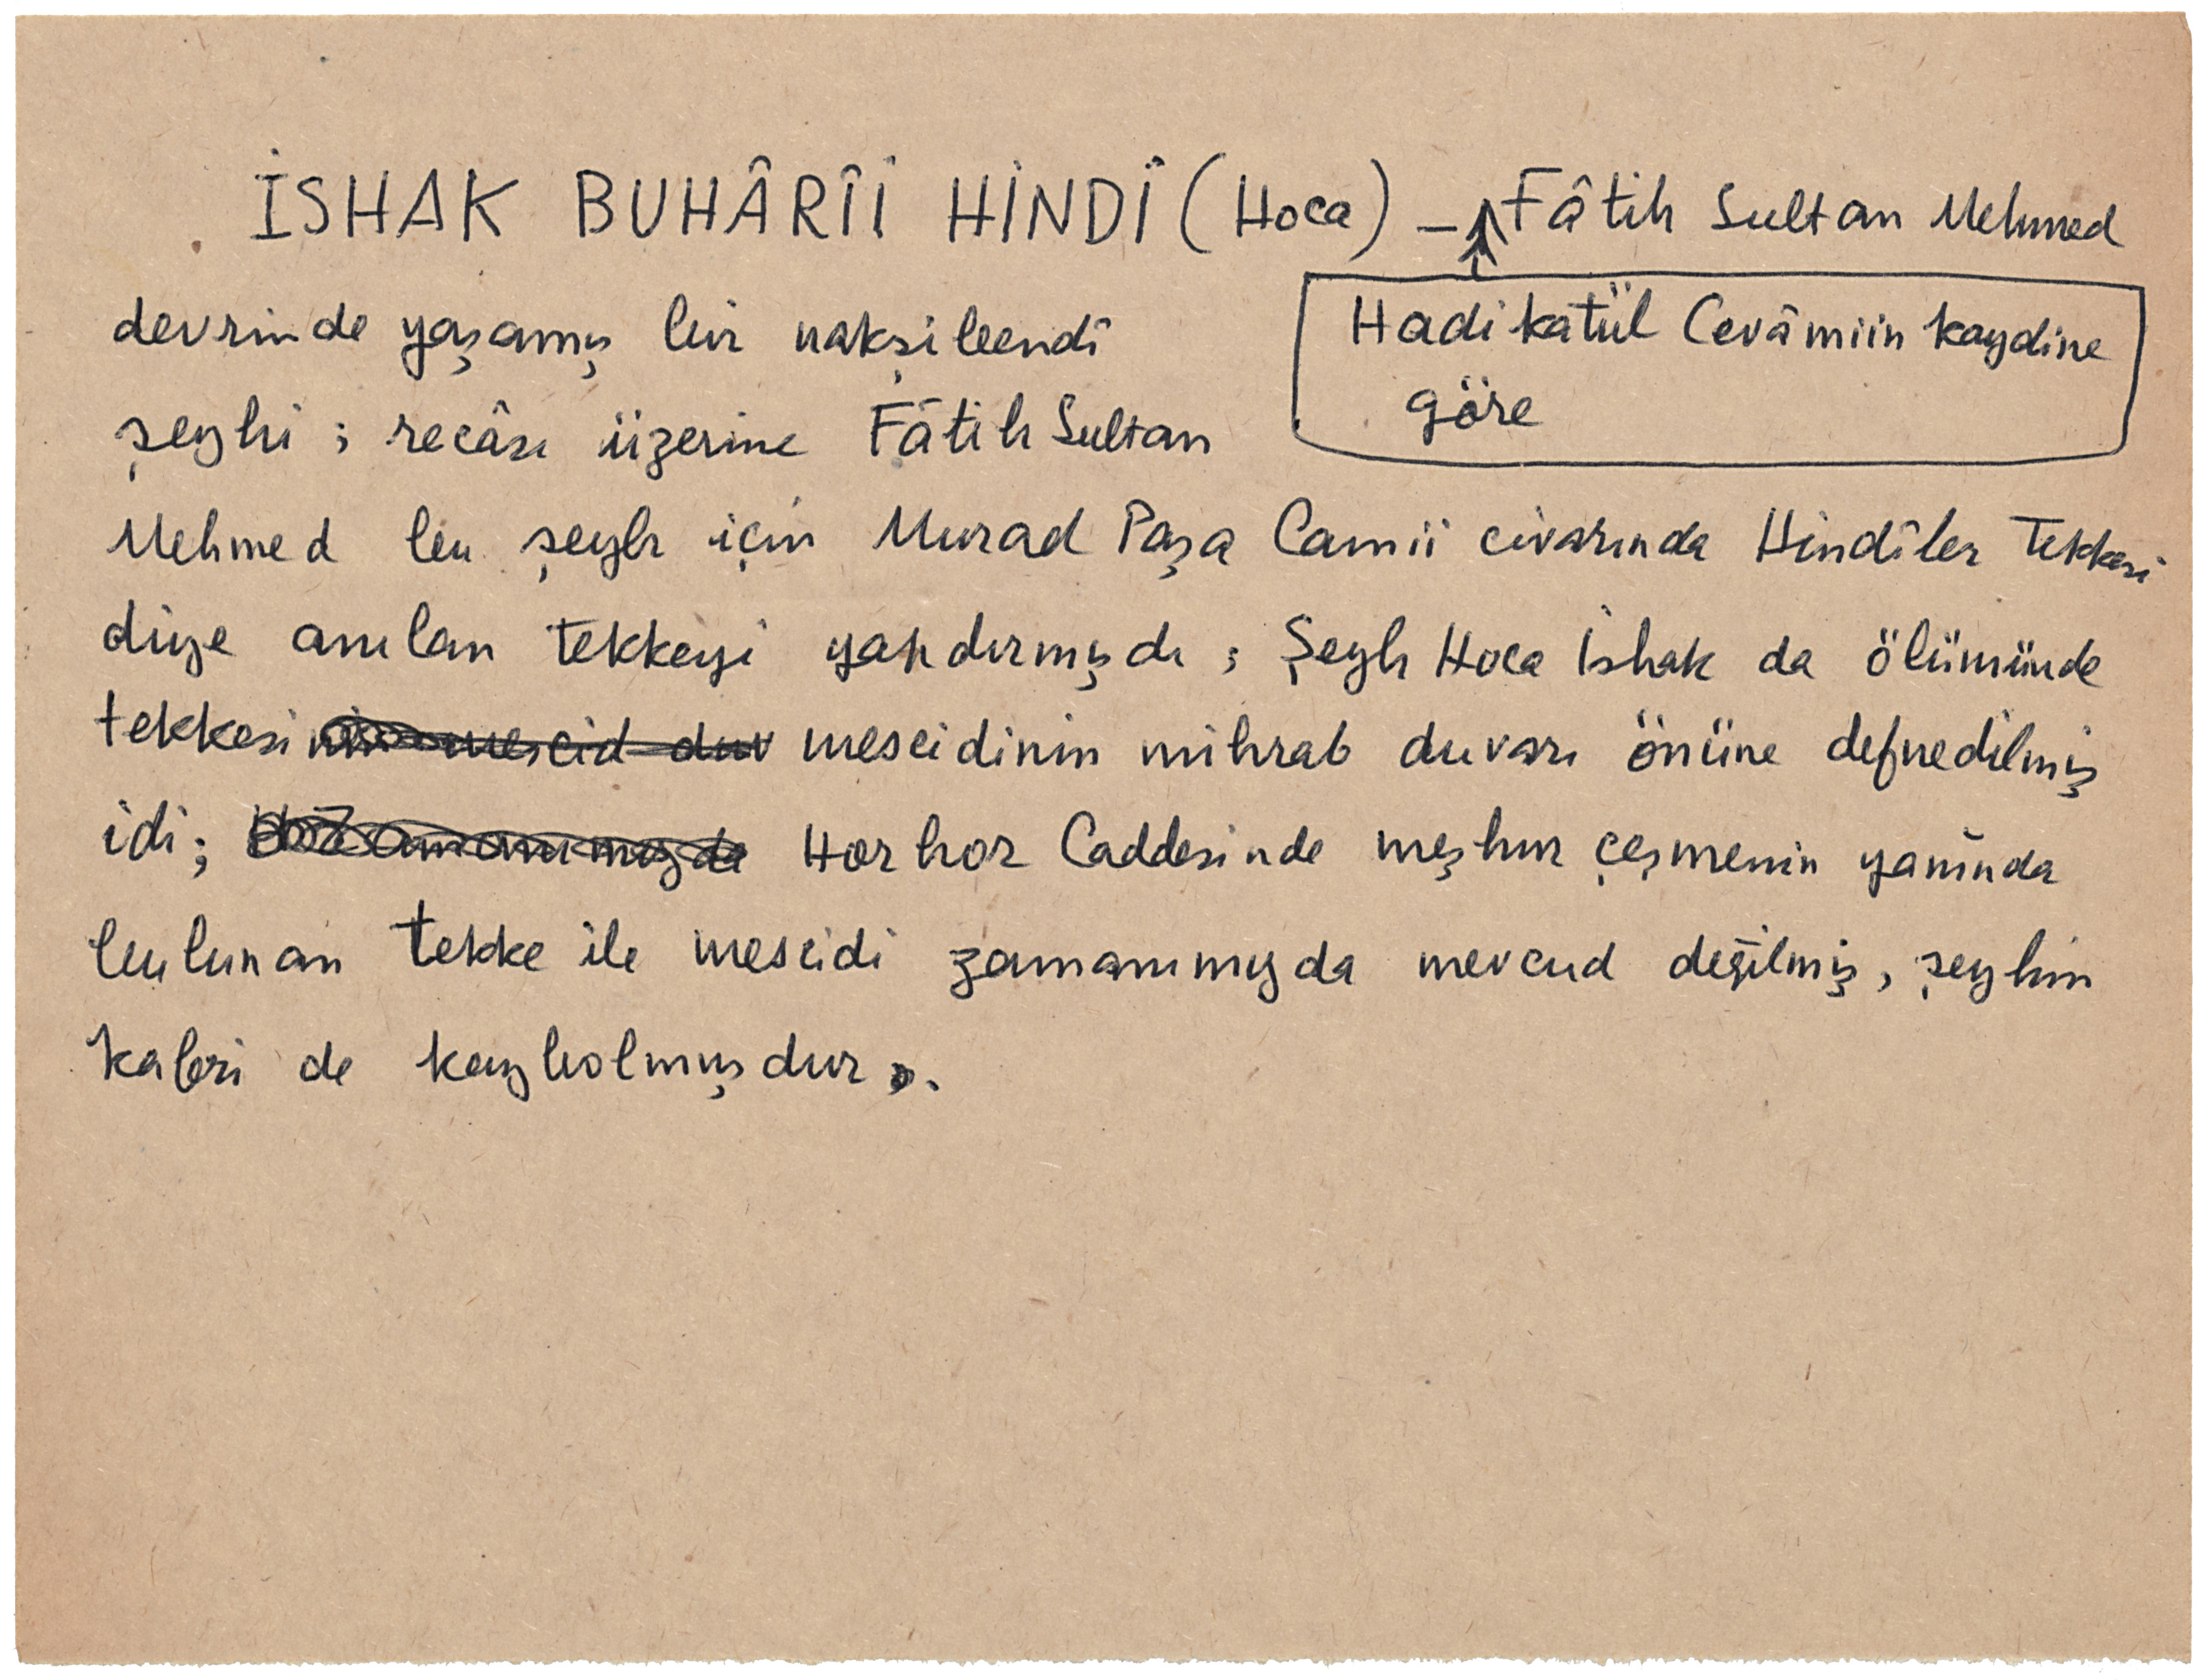 İSHAK BUHÂRÎİ HİNDÎ (Hoca) — Fâtih Sultan Mehmed
Hadikatül Cevâmiin kaydine
göre
devrinde yaşamış bir nakşibendî
şeyhi; recâsı üzerine Fâtih Sultan
Mehmed bu şeyh için Murad Paşa Camii civarında Hindîler Tekkesi
diye anılan tekkeyi yapdırmışdı; Şeyh Hoca İshak da ölümünde
tekkesinin mescid duv mescidinin mihrab duvarı önüne defnedilmiş
idi; zamanımızda Horhor Caddesinde meşhur çeşmenin yanında
bulunan tekke ile mescidi zamanımızda mevcud değilmiş, şeyhin
kabri de kaybolmuşdur.